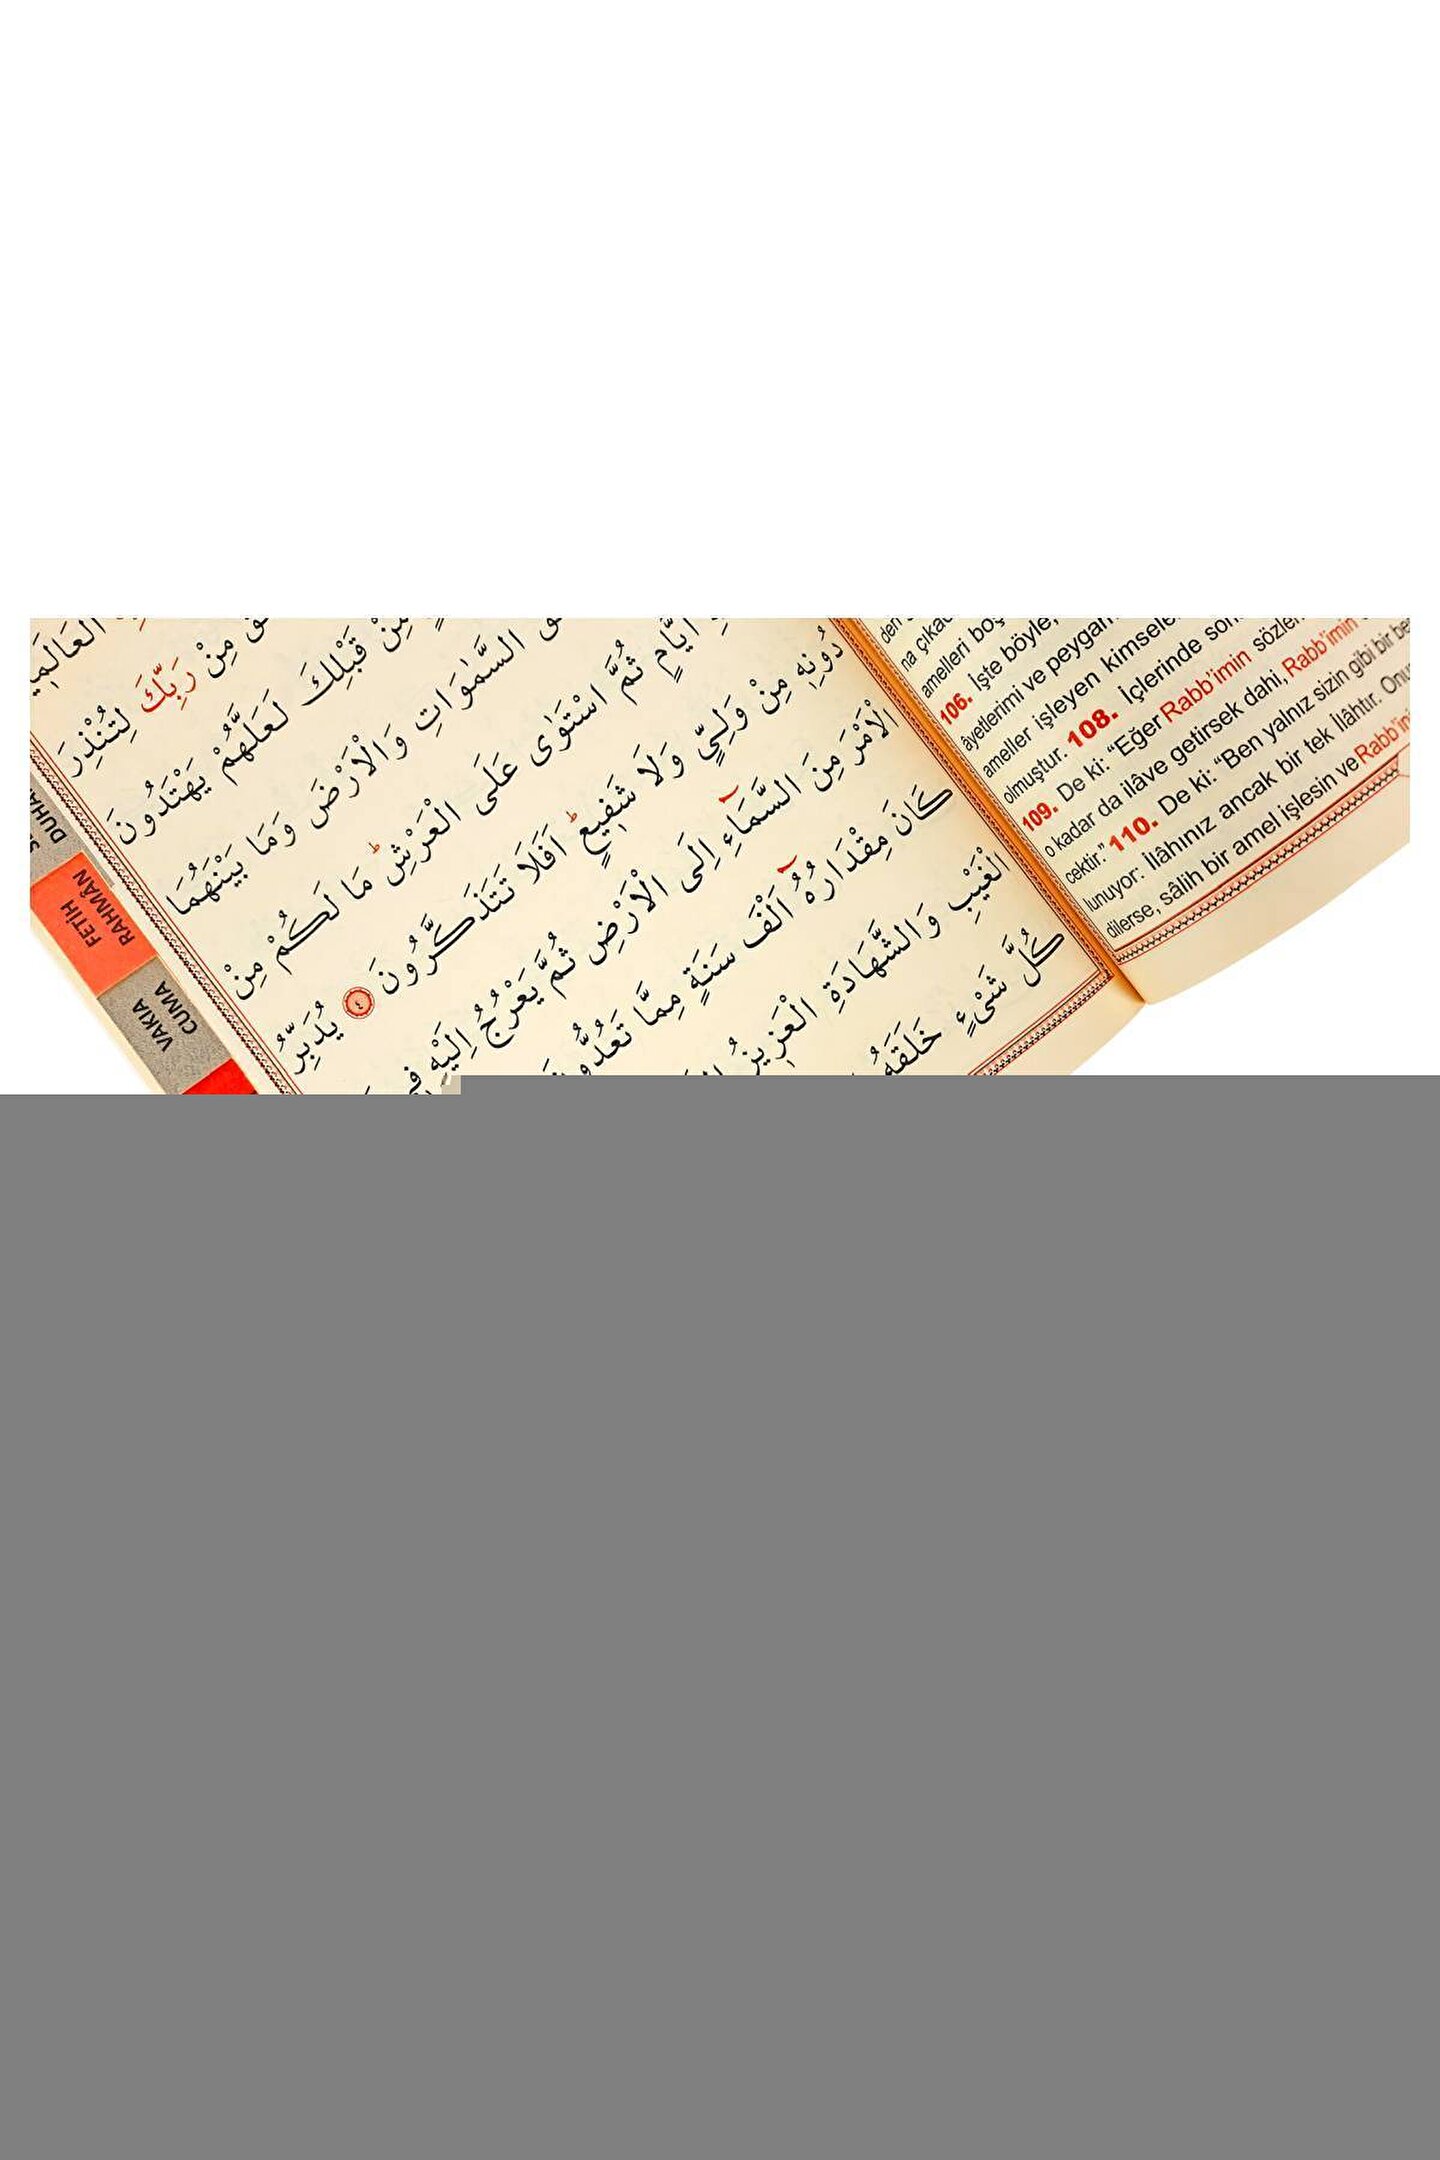 الْعَالَمِي
مِنْ رَبِّكَ لِتُنْذِرَ
مِنْ قَبْلِكَ لَعَلَّهُمْ يَهْتَدُونَ
السَّمٰوَاتِ وَالْاَرْضَ وَمَا بَيْنَهُمَا
اَيَّامٍ ثُمَّ اسْتَوٰى عَلَى الْعَرْشِۜ مَا لَكُمْ مِنْ
دُونِه۪ مِنْ وَلِيٍّ وَلَا شَف۪يعٍۜ اَفَلَا تَتَذَكَّرُونَ ٤ يُدَبِّرُ
الْاَمْرَ مِنَ السَّمَٓاءِ اِلَى الْاَرْضِ ثُمَّ يَعْرُجُ اِلَيْهِ ف۪ي
كَانَ مِقْدَارُهُٓ اَلْفَ سَنَةٍ مِمَّا تَعُدُّو
الْغَيْبِ وَالشَّهَادَةِ الْعَز۪يزُ
كُلَّ شَيْءٍ خَلَقَهُ
DUHA
FETİH
RAHMÂN
VAKIA
CUMA
den
na çıkac
amelleri boş
106. İşte böyle,
âyetlerimi ve peygam
ameller işleyen kimsele
olmuştur. 108. İçlerinde son
109. De ki: “Eğer Rabb'imin sözler
o kadar da ilâve getirsek dahi, Rabb'imin
cektir.” 110. De ki: “Ben yalnız sizin gibi bir be
lunuyor: İlâhınız ancak bir tek İlâhtır. Onu
dilerse, sâlih bir amel işlesin ve Rabb'in